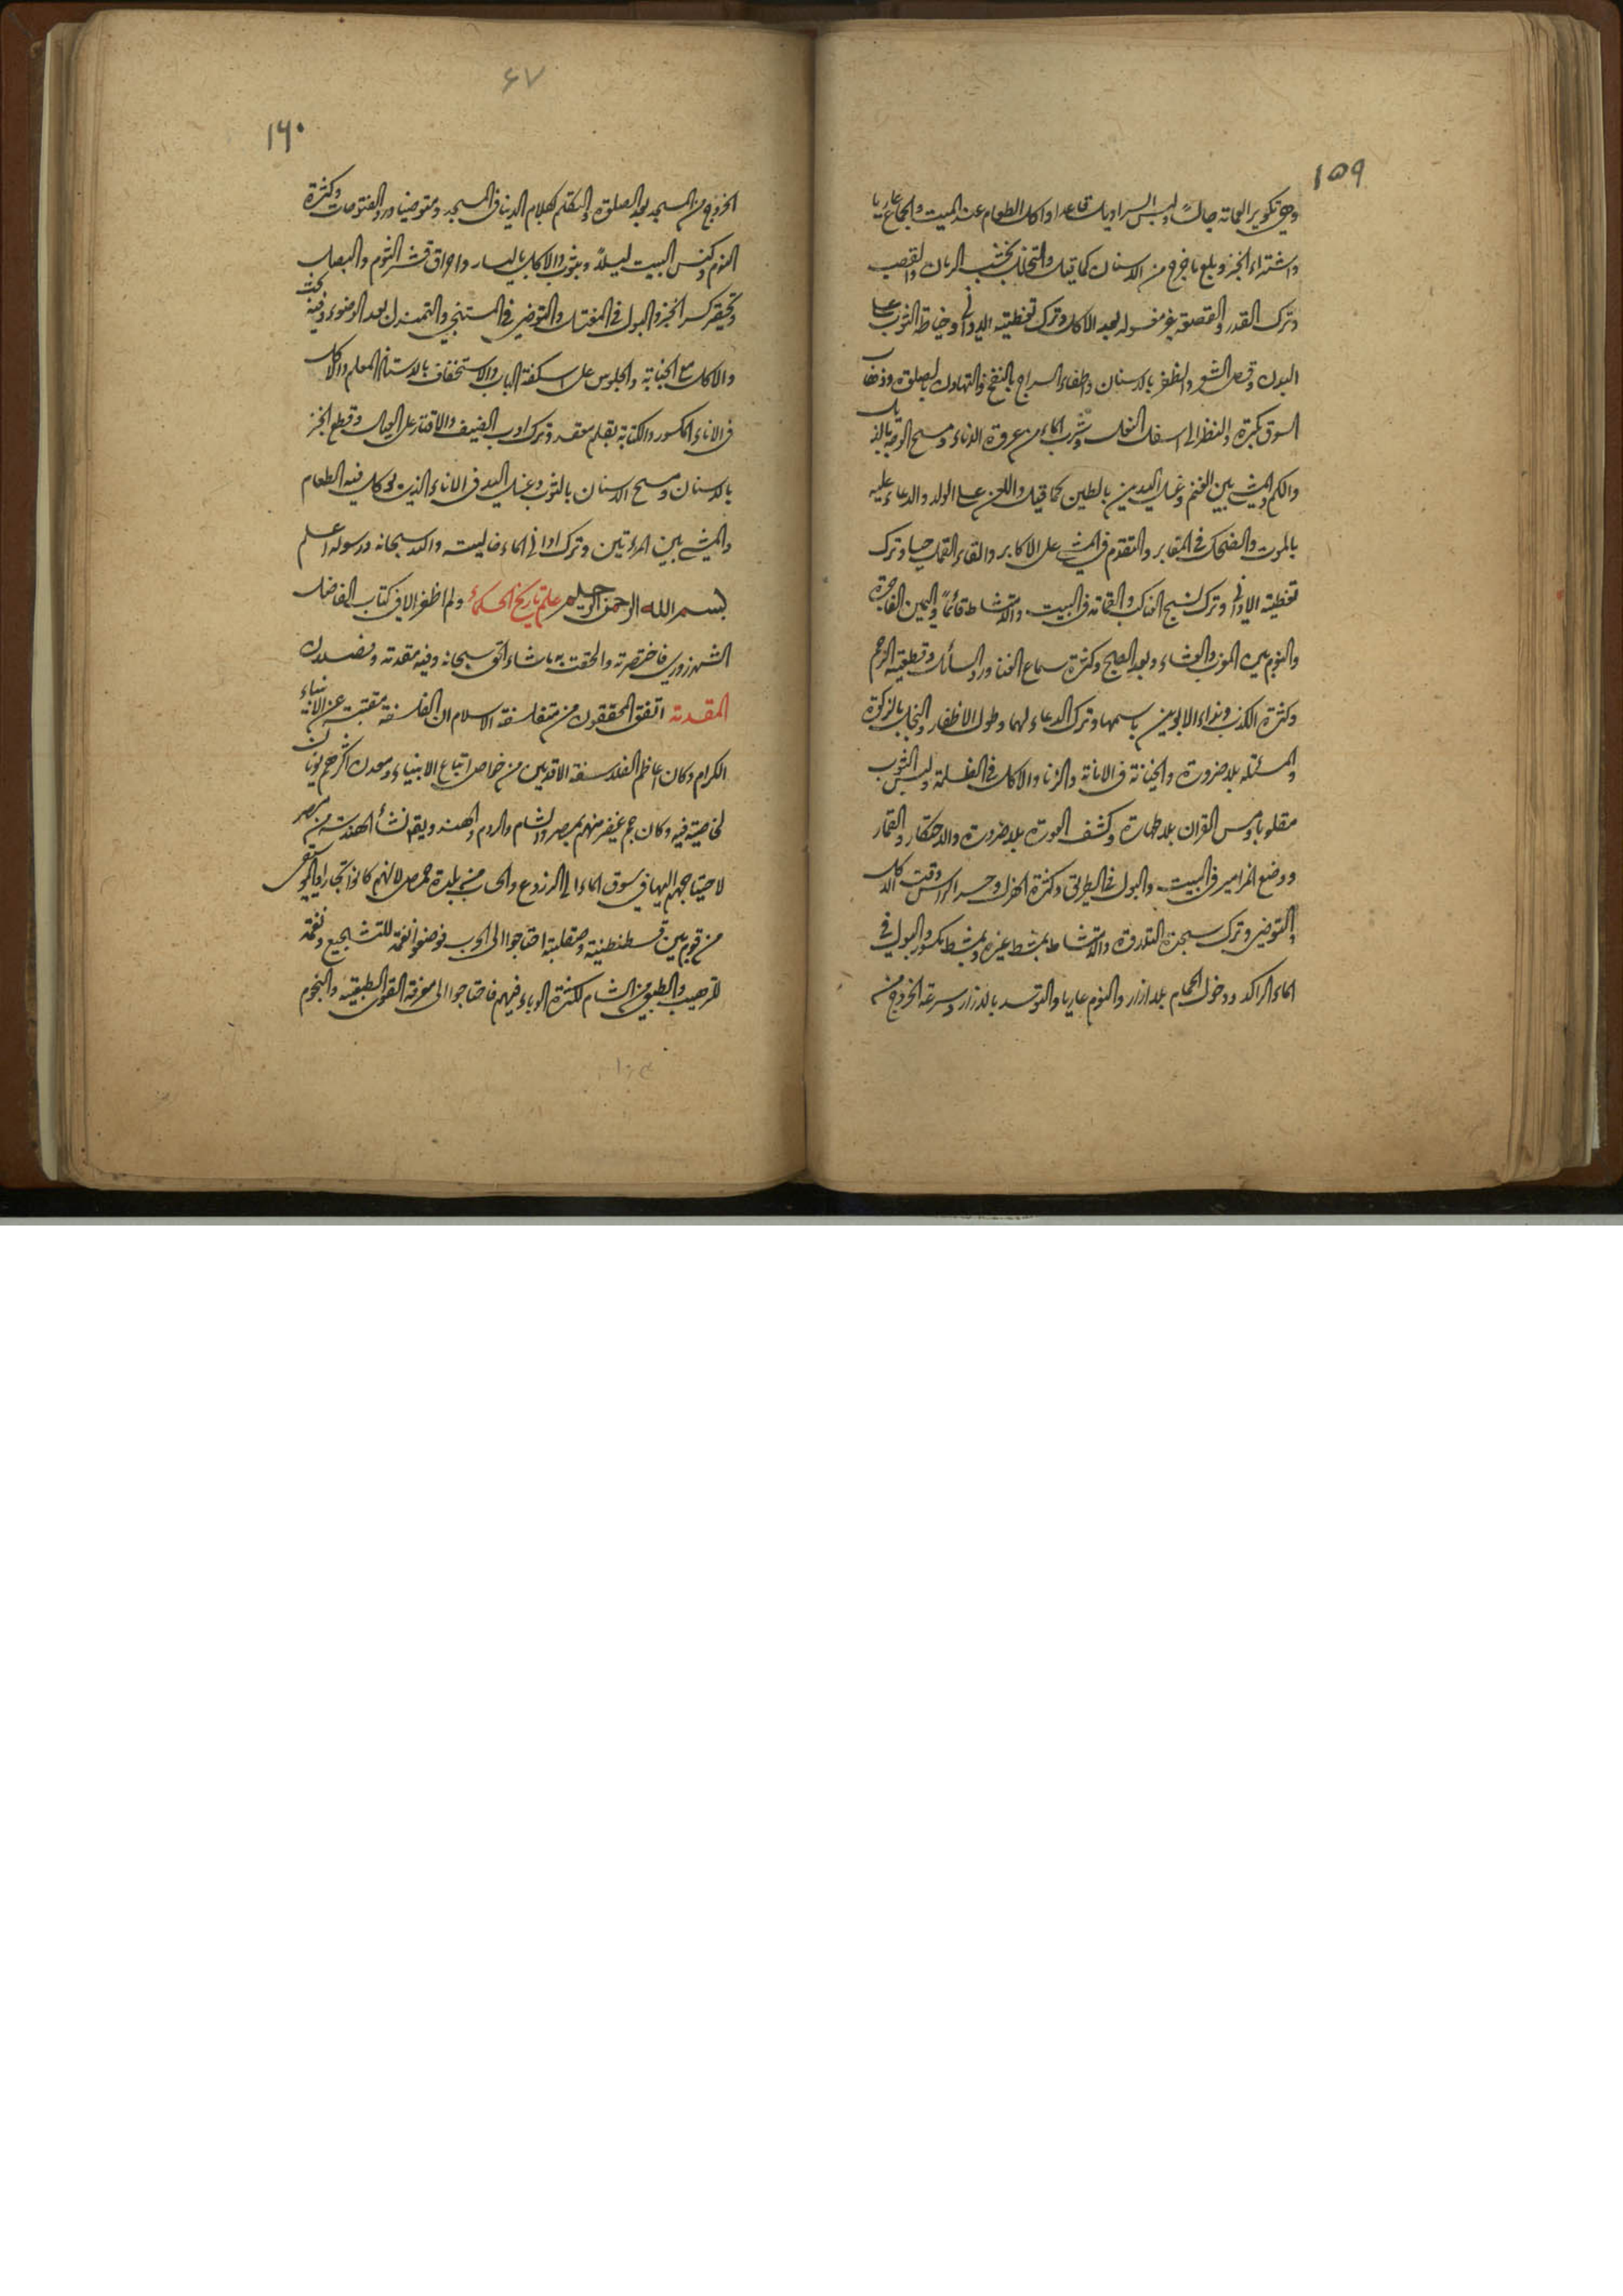 ١٥٩
وهي تكوير العمامة جالسًا ولبس السراويل قاعدا واكل الطعام عند الميت والجماع عاريا
واشتراء الخبز وبلع ما خرج من الاسنان كما قيل والتخلل بخشب الرمان والقصب
وترك القدر والقصعة غير مغسولة بعد الاكل وترك تغطية الاواني وخياطة الثوب على
البدن وقص الشعر والظفر بالاسنان واطفاء السراج بالنفخ والتهاون بالصلوة وذهاب
السوق بكرة والنظر الى اسفل النعل وشرب الماء من عروة الاناء ومسح الوجه بالذيل
والكم والمشي بين الغنم وغسل اليدين بالطين كما قيل واللعن على الولد والدعاء عليه
بالموت والضحك في المقابر والتقدم في المشي على الاكابر والقاء القمل حيا وترك
تغطية الاواني وترك نسج العناكب والقمامة في البيت والامتشاط قائمًا واليمين الفاجرة
والنوم بين المغرب والعشاء وبعد الصبح وكثرة سماع الغناء ورد السائل وقطيعة الرحم
وكثرة الكذب ونداء الابوين باسمهما وترك الدعاء لهما وطول الاظفار والبخل بالزكوة
والمسئلة بلا ضرورة والخيانة في الامانة والزنا والاكل في الظلمة ولبس الثوب
مقلوبا ومس القران بلا طهارة وكشف العورة بلا ضرورة والاحتكار والقمار
ووضع المزامير في البيت والبول في الطريق وكثرة الهزل وحسر الراس وقت الاكل
والتوضي وترك سجدة التلاوة والامتشاط بمشط غيره وبمشط مكسور والبول في
الماء الراكد ودخول الحمام بلا ازار والنوم عاريا والتوسد بالازار وسرعة الخروج من
٦٧
١٦٠
الخروج من المسجد بعد الصلوة والتكلم بكلام الدنيا في المسجد ومتوضيا ورد الفتوحات وكثرة
النوم وكنس البيت ليلًا وبثوب والاكل باليسار واحراق قشر الثوم والبصل
وتحقير كسر الخبز والبول في المغتسل والتوضي في المستنجي والتمندل بعد الوضوء وفيه بحث
والاكل مع الجنابة والجلوس على اسكفة الباب والاستخفاف بالاستاذ المعلم والاكل
في الاناء المكسور والكتابة بقلم معقد وترك ادب الضيف والاقتار على العيال وقطع الخبز
بالاسنان ومسح الاسنان بالثوب وغسل اليد في الاناء الذي يوكل فيه الطعام
والمشي بين المرءتين وترك اواني الماء خالية والله سبحانه ورسوله اعلم
بسم الله الرحمن الرحيم علم تاريخ الحكماء ولم اظفر الا في كتاب الفاضل
الشهرزوري فاختصرته والحقت به ما شاء الحق سبحانه وفيه مقدمة وفصلان
المقدمة اتفق المحققون من متفلسفة الاسلام ان الفلسفة مقتبسة عن الانبياء
الكرام وكان اعاظم الفلاسفة الاقدمين من خواص اتباع الانبياء ومعدن اكثرهم يونان
لخاصية فيه وكان جم غفير منهم بمصر والشام والروم والهند ويقال نشأ الهندسة من مصر
لاحتياجهم اليها في سوق الماء الى الزروع والحساب من بلدة حمص لانهم كانوا تجارا والموسيقى
من قوم بين قسطنطنية وصقلبة احتاجوا الى الحرب فوضعوا نغمة للتشجيع ونغمة
للترهيب والطب من الشام لكثرة الوباء فيهم فاحتاجوا الى معرفة القوى الطبيعية والنجوم